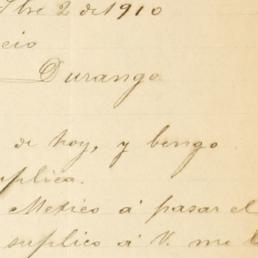 bre 2 de 1910
cio
Durango
de hoy, y bengo
uplica.
Mexico á pasar el
suplico á V. me l